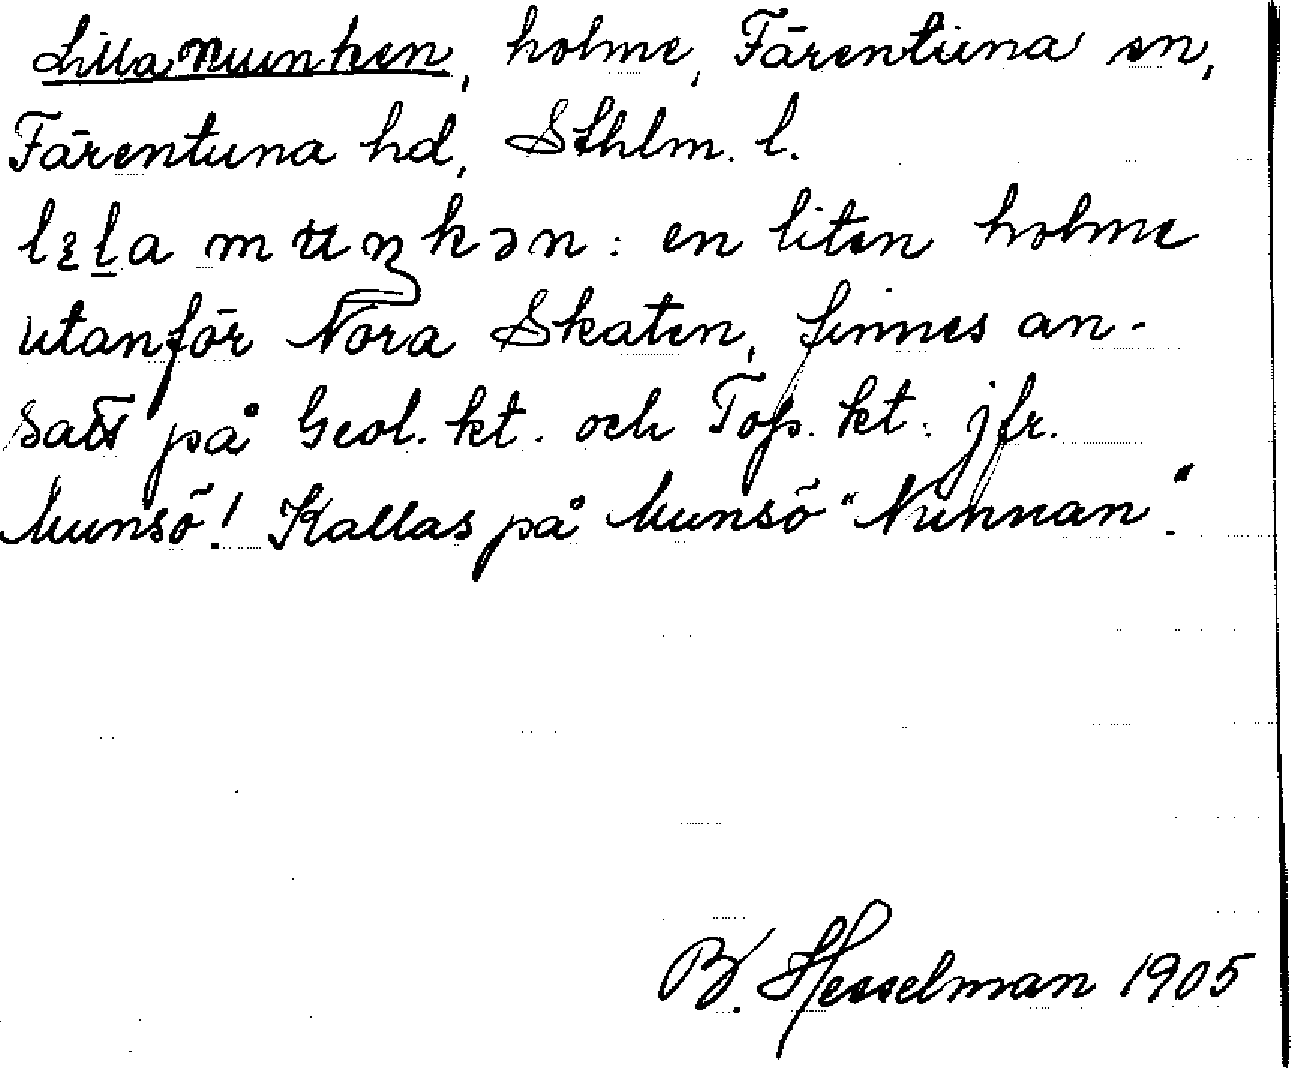 Lilla Munken, holme, Färentuna sn,
Färentuna hd, Sthlm. l.
lıḷa mʉŋkən: en liten holme
utanför Nora Skaten, finnes an-
satt på Geol. kt. och Top. kt. jfr.
Munsö! Kallas på Munsö "Nunnan".
B. Hesselman 1905